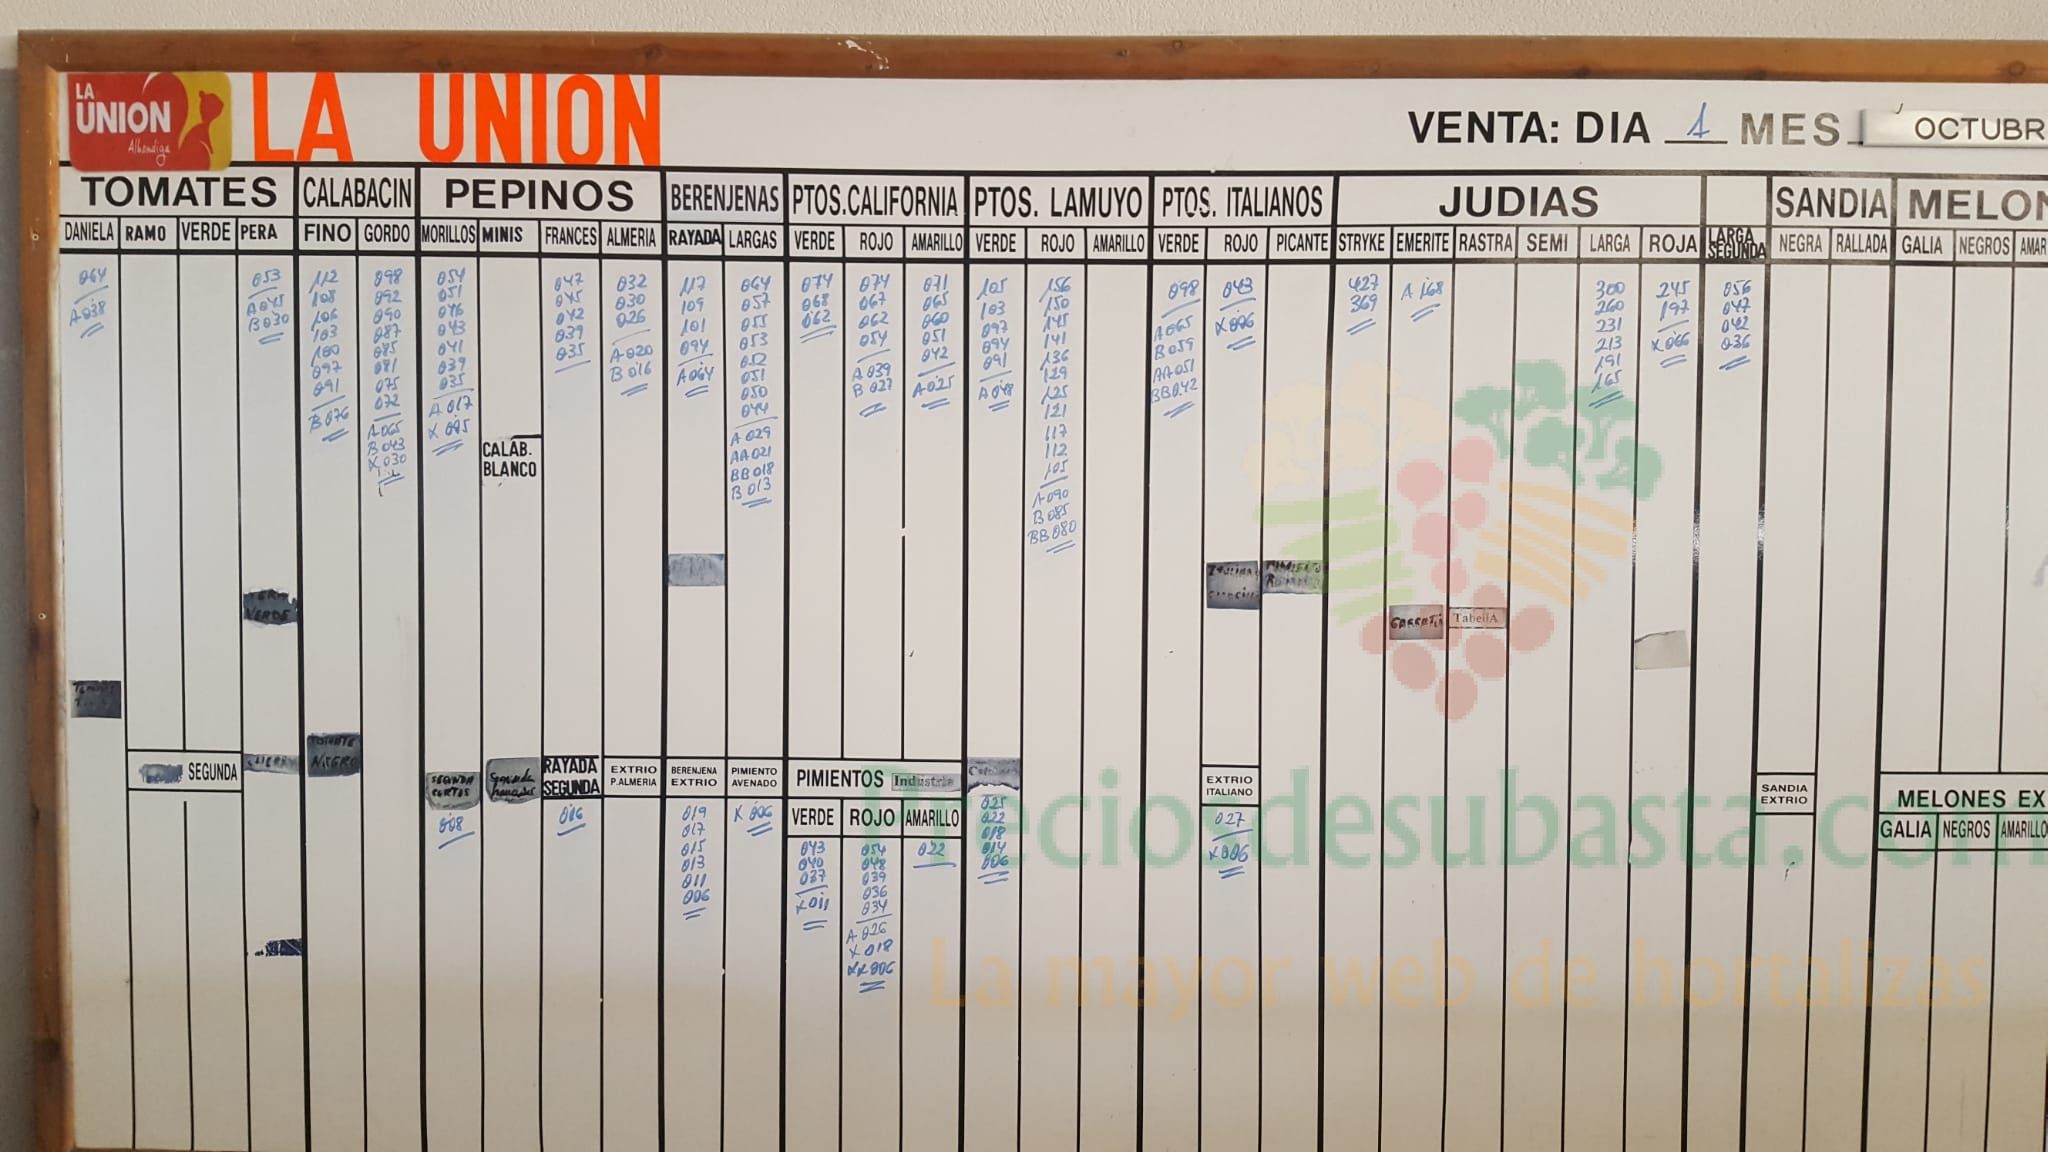 LA
UNION
Alhondiga
LA UNION
VENTA: DIA 1 MES OCTUBR
TOMATES CALABACIN PEPINOS BERENJENAS PTOS.CALIFORNIA PTOS. LAMUYO PTOS. ITALIANOS JUDIAS SANDIA MELON
DANIELA RAMO VERDE PERA FINO GORDO MORILLOS MINIS FRANCES ALMERIA RAYADA LARGAS VERDE ROJO AMARILLO VERDE ROJO AMARILLO VERDE ROJO PICANTE STRYKE EMERITE RASTRA SEMI LARGA ROJA LARGA SEGUNDA NEGRA RALLADA GALIA NEGROS AMAR
064
A 038
053
A 045
B 030
112
108
106
103
100
097
091
B 076
098
092
090
087
085
081
075
072
A 065
B 043
X 030
054
051
046
043
041
039
035
A 017
X 005
CALAB.
BLANCO
047
045
042
039
035
032
030
026
A 020
B 016
117
109
101
094
A 064
064
057
055
053
052
051
050
044
A 029
AA 021
BB 018
B 013
074
068
062
074
067
062
054
A 039
B 027
071
065
060
051
042
A 025
105
103
097
094
091
A 048
156
150
145
141
136
129
125
121
117
112
105
A 090
B 085
BB 080
098
A 065
B 059
AA 051
BB 042
043
X 006
427
369
A 168
300
260
231
213
191
165
245
197
X 066
056
047
042
036
VERDE
TabellA
SEGUNDA
TOMATE
NEGRO
SEGUNDA
CORTOS
008
Segunda
RAYADA
SEGUNDA
016
EXTRIO
P.ALMERIA
BERENJENA
EXTRIO
019
017
015
013
011
006
PIMIENTO
AVENADO
X 006
PIMIENTOS Industria
VERDE ROJO AMARILLO
043
040
037
X 011
054
048
039
036
034
A 026
X 018
XX 006
022
025
022
018
014
006
EXTRIO
ITALIANO
027
X 006
SANDIA
EXTRIO
MELONES EX
GALIA NEGROS AMARILLO
Preciosdesubasta.com
La mayor web de hortalizas